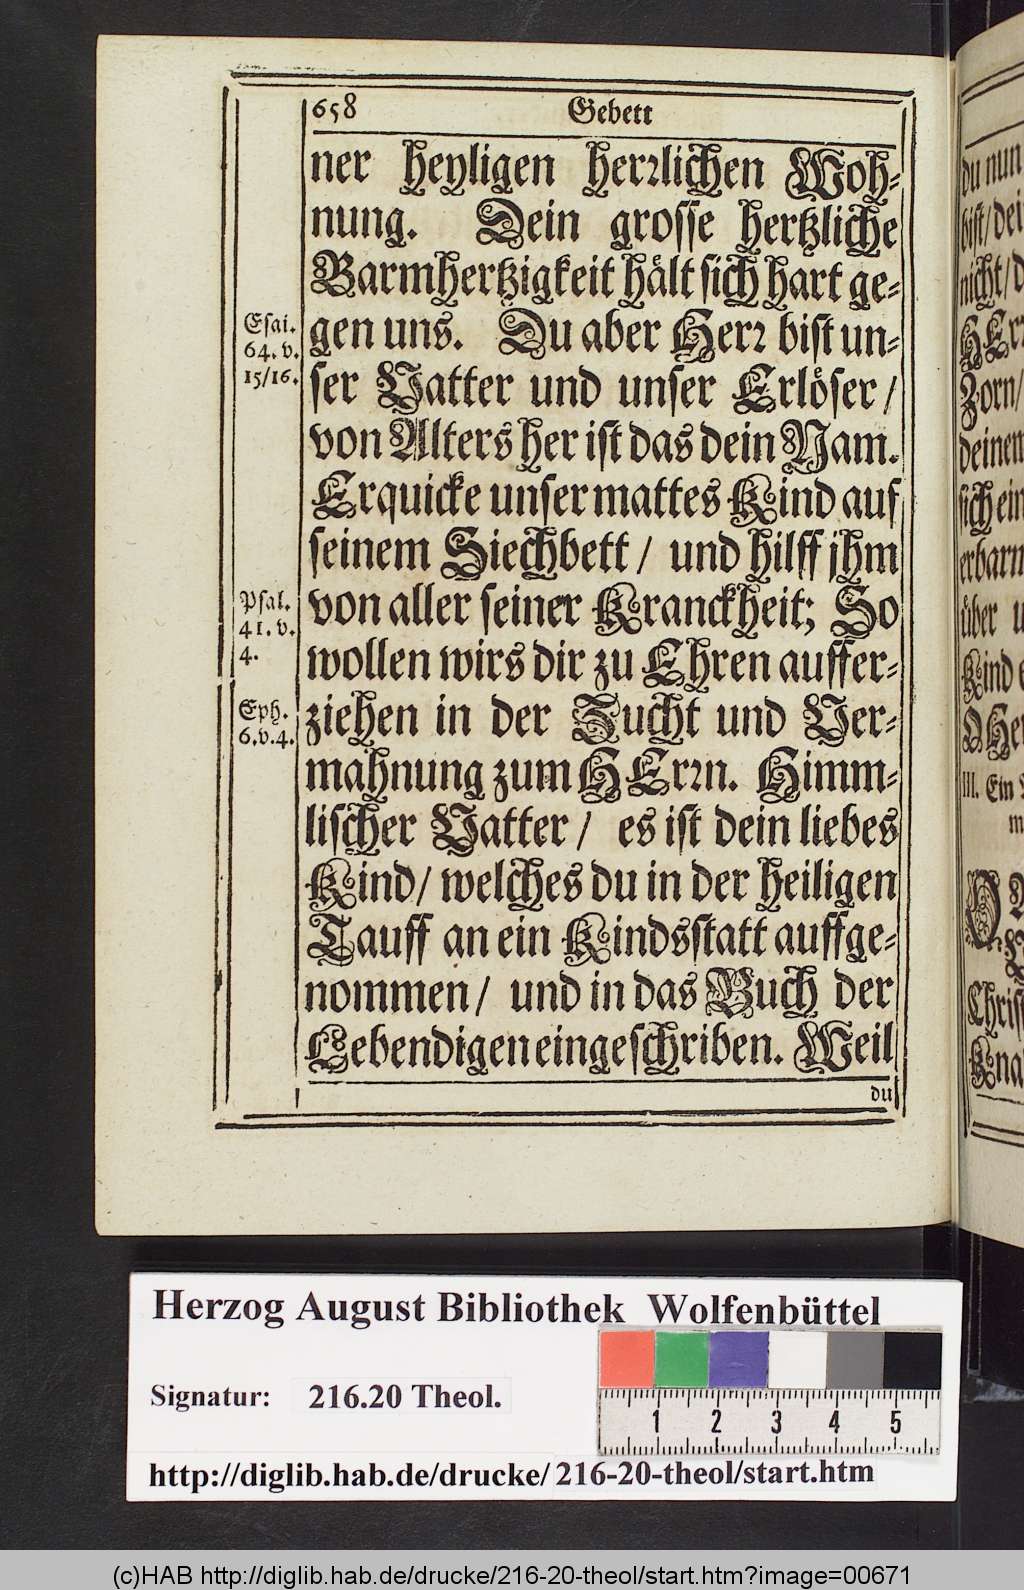 658 Gebett
ner heyligen herꝛlichen Woh-
nung. Dein grosse hertzliche
Barmhertzigkeit hält sich hart ge-
gen uns. Du aber Herꝛ bist un-
ser Vatter und unser Erlöser /
von Alters her ist das dein Nam.
Erquicke unser mattes Kind auf
seinem Siechbett / und hilff jhm
von aller seiner Kranckheit; So
wollen wirs dir zu Ehren auffer-
ziehen in der Zucht und Ver-
mahnung zum HErꝛn. Himm-
lischer Vatter / es ist dein liebes
Kind / welches du in der heiligen
Tauff an ein Kindsstatt auffge-
nommen / und in das Buch der
Lebendigen eingeschriben. Weil
du
Esai.
64. v.
15/16.
Psal.
41. v.
4.
Eph.
6. v. 4.
du nun
bist / dei
nicht / d
HErꝛ
Zorn /
deinem
sich ein
erbarm
über u
Kind
III. Ein
m
Christ
Kna
Herzog August Bibliothek Wolfenbüttel
Signatur: 216.20 Theol.
1 2 3 4 5
http://diglib.hab.de/drucke/216-20-theol/start.htm
(c)HAB http://diglib.hab.de/drucke/216-20-theol/start.htm?image=00671